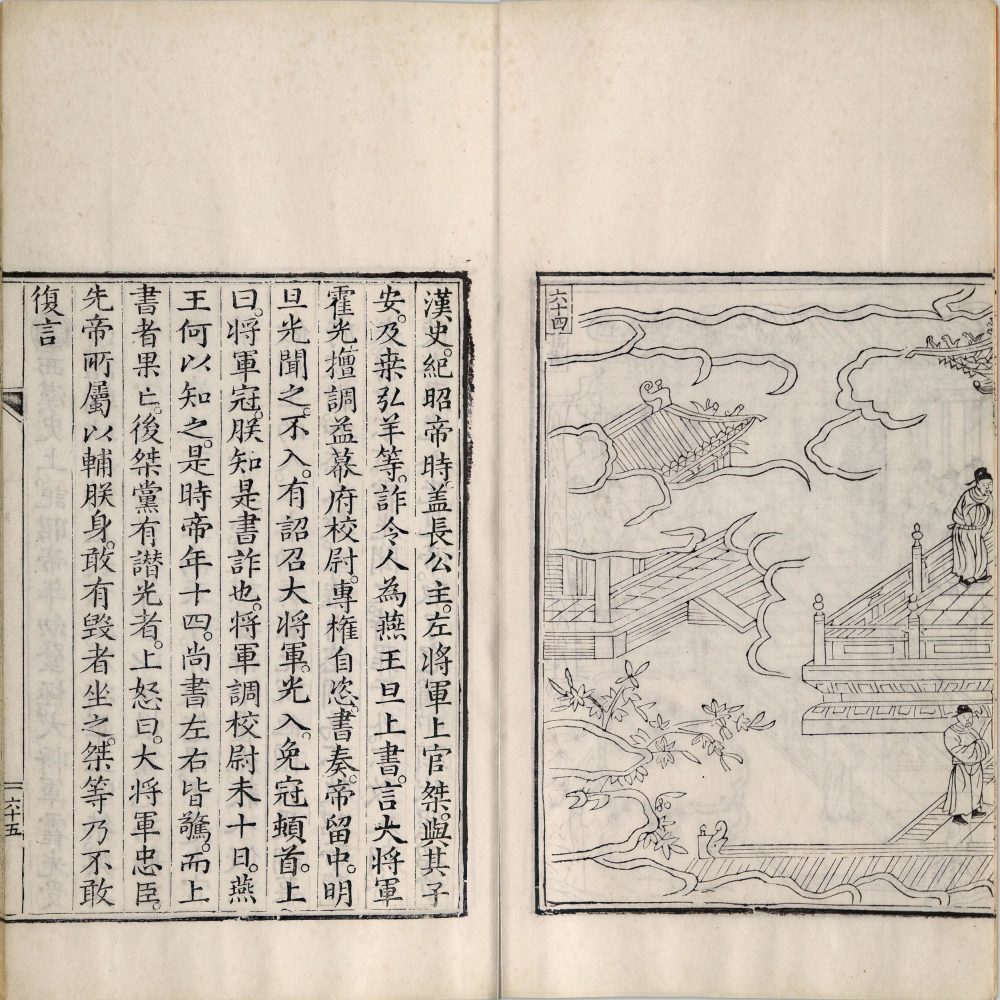 六十四
漢史紀昭帝時盖長公主。左將軍上官桀。與其子
安。及桒弘羊等。詐令人為燕王旦上書。言大將軍
霍光擅調益幕府校尉。專權自恣。書奏。帝留中。明
旦光聞之。不入。有詔召大將軍。光入。免冠頓首。上
曰。將軍冠。朕知是書詐也。將軍調校尉未十日。燕
王何以知之。是時帝年十四。尚書左右皆驚。而上
書者果亡。後桀黨有譖光者。上怒曰。大將軍忠臣。
先帝所屬以輔朕身。敢有毀者坐之。桀等乃不敢
復言
六十五